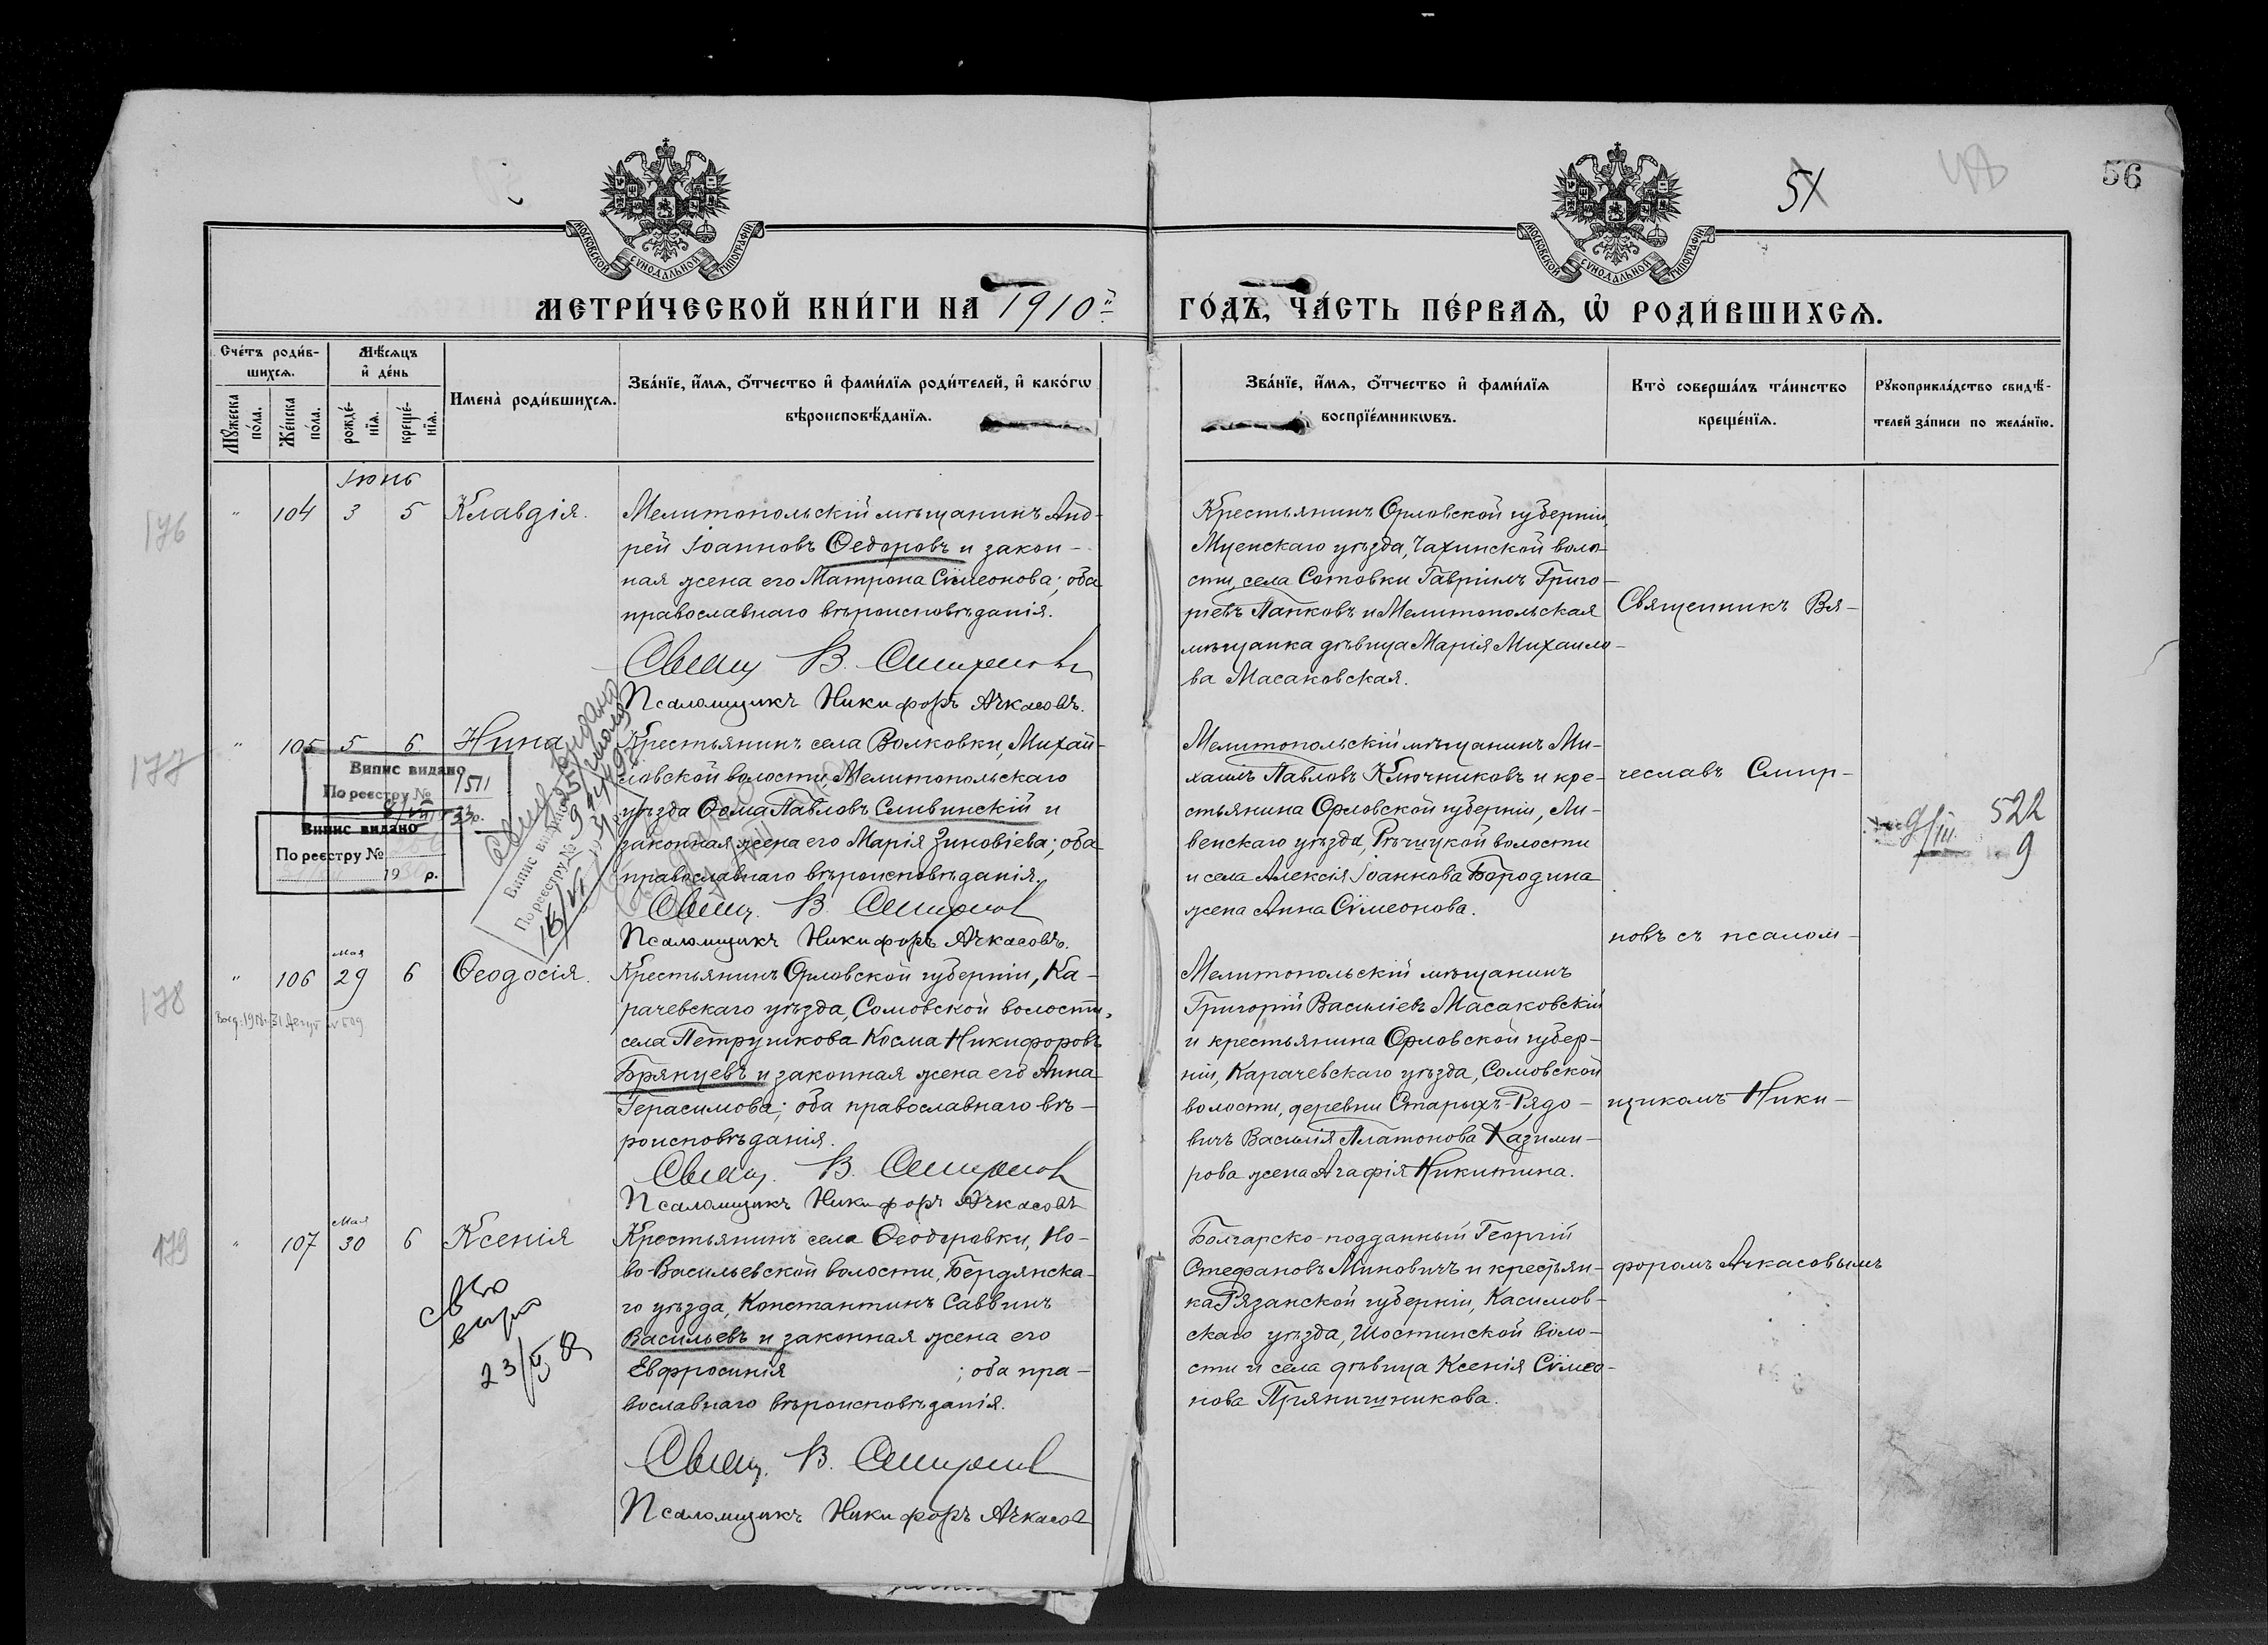 56
51
МОСКОВСКОЙ СУНОДАЛЬНОЙ ТИПОГРАФІИ
МОСКОВСКОЙ СУНОДАЛЬНОЙ ТИПОГРАФІИ
МЕТРИ́ЧЕСКОЙ КНИ́ГИ НА 1910й
ГО́ДЪ, ЧА́СТЬ ПЕ́РВАѦ, Ѡ҆ РОДИ́ВШИХСѦ.
Сче́тъ роди́в-
шихсѧ.
Мѣ́сѧцъ
и҆ де́нь
Мꙋ́жеска
по́ла.
Же́нска
по́ла.
рожде́-
нїѧ.
креще́-
нїѧ.
Имена̀ роди́вшихсѧ.
Зва́нїе, и҆́мѧ, ѻ҆́тчество и҆ фами́лїѧ роди́телей, и҆ како́гѡ
вѣроисповѣ́данїѧ.
Зва́нїе, и҆́мѧ, ѻ҆́тчество и҆ фами́лїѧ
воспрїе́мникѡвъ.
Кто̀ соверша́лъ та́инство
креще́нїѧ.
Рꙋкоприкла́дство свидѣ́-
телей за́писи по жела́нїю.
Іюнь
176
" 104 3 5 Клавдія.
Мелитопольскій мѣщанинъ Анд-
рей Іоанновъ Ѳедоровъ и закон-
ная жена его Матрона Сѵмеонова; оба
православнаго вѣроисповѣданія.
Свящ В. Смирновъ
Псаломщикъ Никифоръ Ачкасовъ.
Крестьянинъ Орловской губерніи,
Мценскаго уѣзда, Чахинской воло-
сти, села Сотовки Гавріилъ Григо-
ріевъ Папковъ и Мелитопольская
мѣщанка дѣвица Марія Михаило-
ва Масаковская.
177
" 105 5 6 Нина
Крестьянинъ села Волковки, Михай-
ловской волости Мелитопольскаго
уѣзда Ѳома Павловъ Сливинскій и
законная жена его Марія Зиновіева; оба
православнаго вѣроисповѣданія.
Свящ. В. Смирнов
Псаломщикъ Никифоръ Ачкасовъ.
Мелитопольскій мѣщанинъ Ми-
хаилъ Павловъ Ключниковъ и кре-
стьянина Орловской губерніи, Ли-
венскаго уѣзда, Рѣчицкой волости
и села Алексія Іоаннова Бородина
жена Анна Сѵмеонова.
Випис видано
По реєстру № 1511
Випис видано
По реєстру №
19 р.
Випис видано
По реєстру №
522
9
178
мая
" 106 29 6 Ѳеодосія.
Крестьянинъ Орловской губерніи, Ка-
рачевскаго уѣзда, Сомовской волости,
села Петрушкова Косма Никифоровъ
Брянцевъ и законная жена его Анна
Герасимова; оба православнаго вѣ-
роисповѣданія.
Свящ. В. Смирнов
Псаломщикъ Никифоръ Ачкасовъ
Мелитопольскій мѣщанинъ
Григорій Василіевъ Масаковскій
и крестьянина Орловской губер-
ніи, Карачевскаго уѣзда, Сомовской
волости, деревни Старыхъ-Рядо-
вичъ Василія Платонова Казими-
рова жена Агафія Никитина.
179
мая
" 107 30 6 Ксенія
Крестьянинъ села Ѳеодоровки, Но-
во-Васильевской волости, Бердянска-
го уѣзда, Константинъ Саввинъ
Васильевъ и законная жена его
Евфросинія ; оба пра-
вославнаго вѣроисповѣданія.
Свящ. В. Смирнов
Псаломщикъ Никифоръ Ачкасов
Болгарско-подданный Георгій
Стефановъ Миновичъ и крестьян-
ка Рязанской губерніи, Касимов-
скаго уѣзда, Шостинской воло-
сти и села дѣвица Ксенія Сѵмео-
нова Прянишникова.
Священникъ Вя-
чеславъ Смир-
новъ съ псалом-
щикомъ Ники-
форомъ Ачкасовымъ